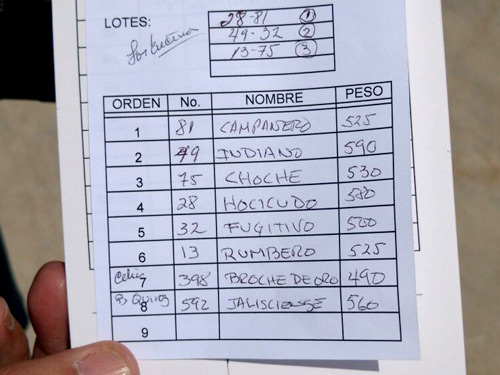 LOTES:
28-81 1
49-32 2
13-75 3
ORDEN No. NOMBRE PESO
1 81 CAMPANERO 525
2 49 INDIANO 590
3 75 CHOCHE 530
4 28 HOCICUDO 530
5 32 FUGITIVO 500
6 13 RUMBERO 525
7 398 BROCHE DE ORO 490
8 592 JALISCIENSE 560
9